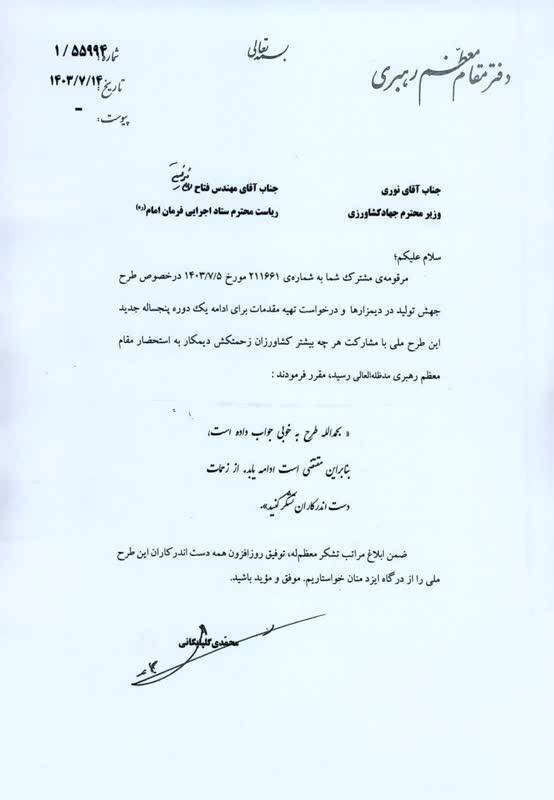 بسمه تعالی
دفتر مقام معظم رهبری
شماره: ۱/۵۵۹۹۴
تاریخ: ۱۴۰۳/۷/۱۴
پیوست: -
جناب آقای نوری
وزیر محترم جهادکشاورزی
جناب آقای مهندس فتاح
ریاست محترم ستاد اجرایی فرمان امام(ره)
سلام علیکم؛
مرقومه‌ی مشترک شما به شماره‌ی ۲۱۱۶۶۱ مورخ ۱۴۰۳/۷/۵ درخصوص طرح
جهش تولید در دیمزارها و درخواست تهیه مقدمات برای ادامه یک دوره پنجساله جدید
این طرح ملی با مشارکت هر چه بیشتر کشاورزان زحمتکش دیمکار به استحضار مقام
معظم رهبری مدظله‌العالی رسید، مقرر فرمودند :
« بحمدالله طرح به خوبی جواب داده است،
بنابراین مقتضی است ادامه یابد. از زحمات
دست اندرکاران تشکر کنید».
ضمن ابلاغ مراتب تشکر معظم‌له، توفیق روزافزون همه دست اندرکاران این طرح
ملی را از درگاه ایزد منان خواستاریم. موفق و مؤید باشید.
محمّدی گلپایگانی